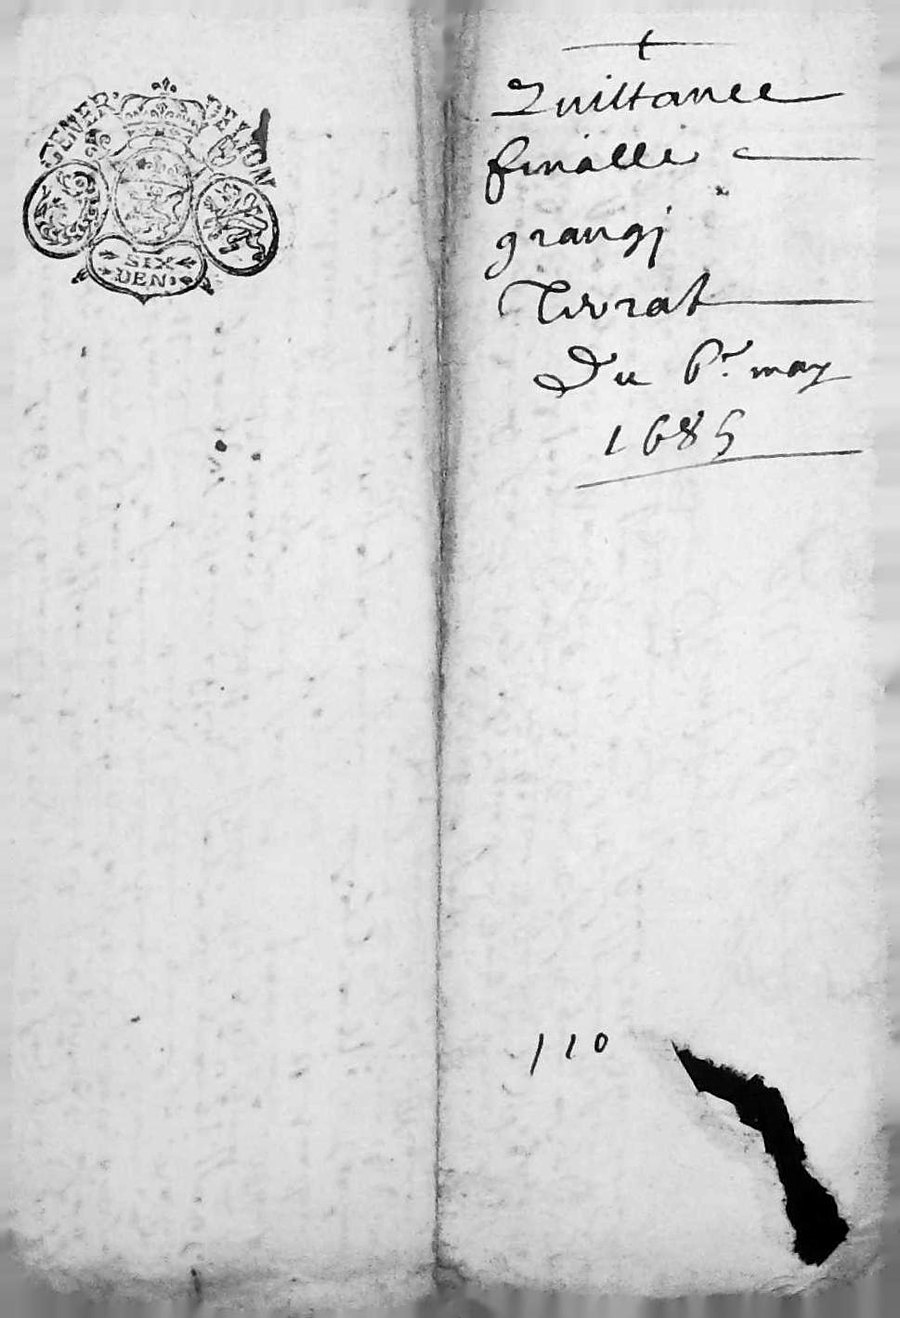 GENER. DE LYON
SIX
DEN.
Quittance
finalle
grangj
Tivrat
Du 6.r may
1685
110